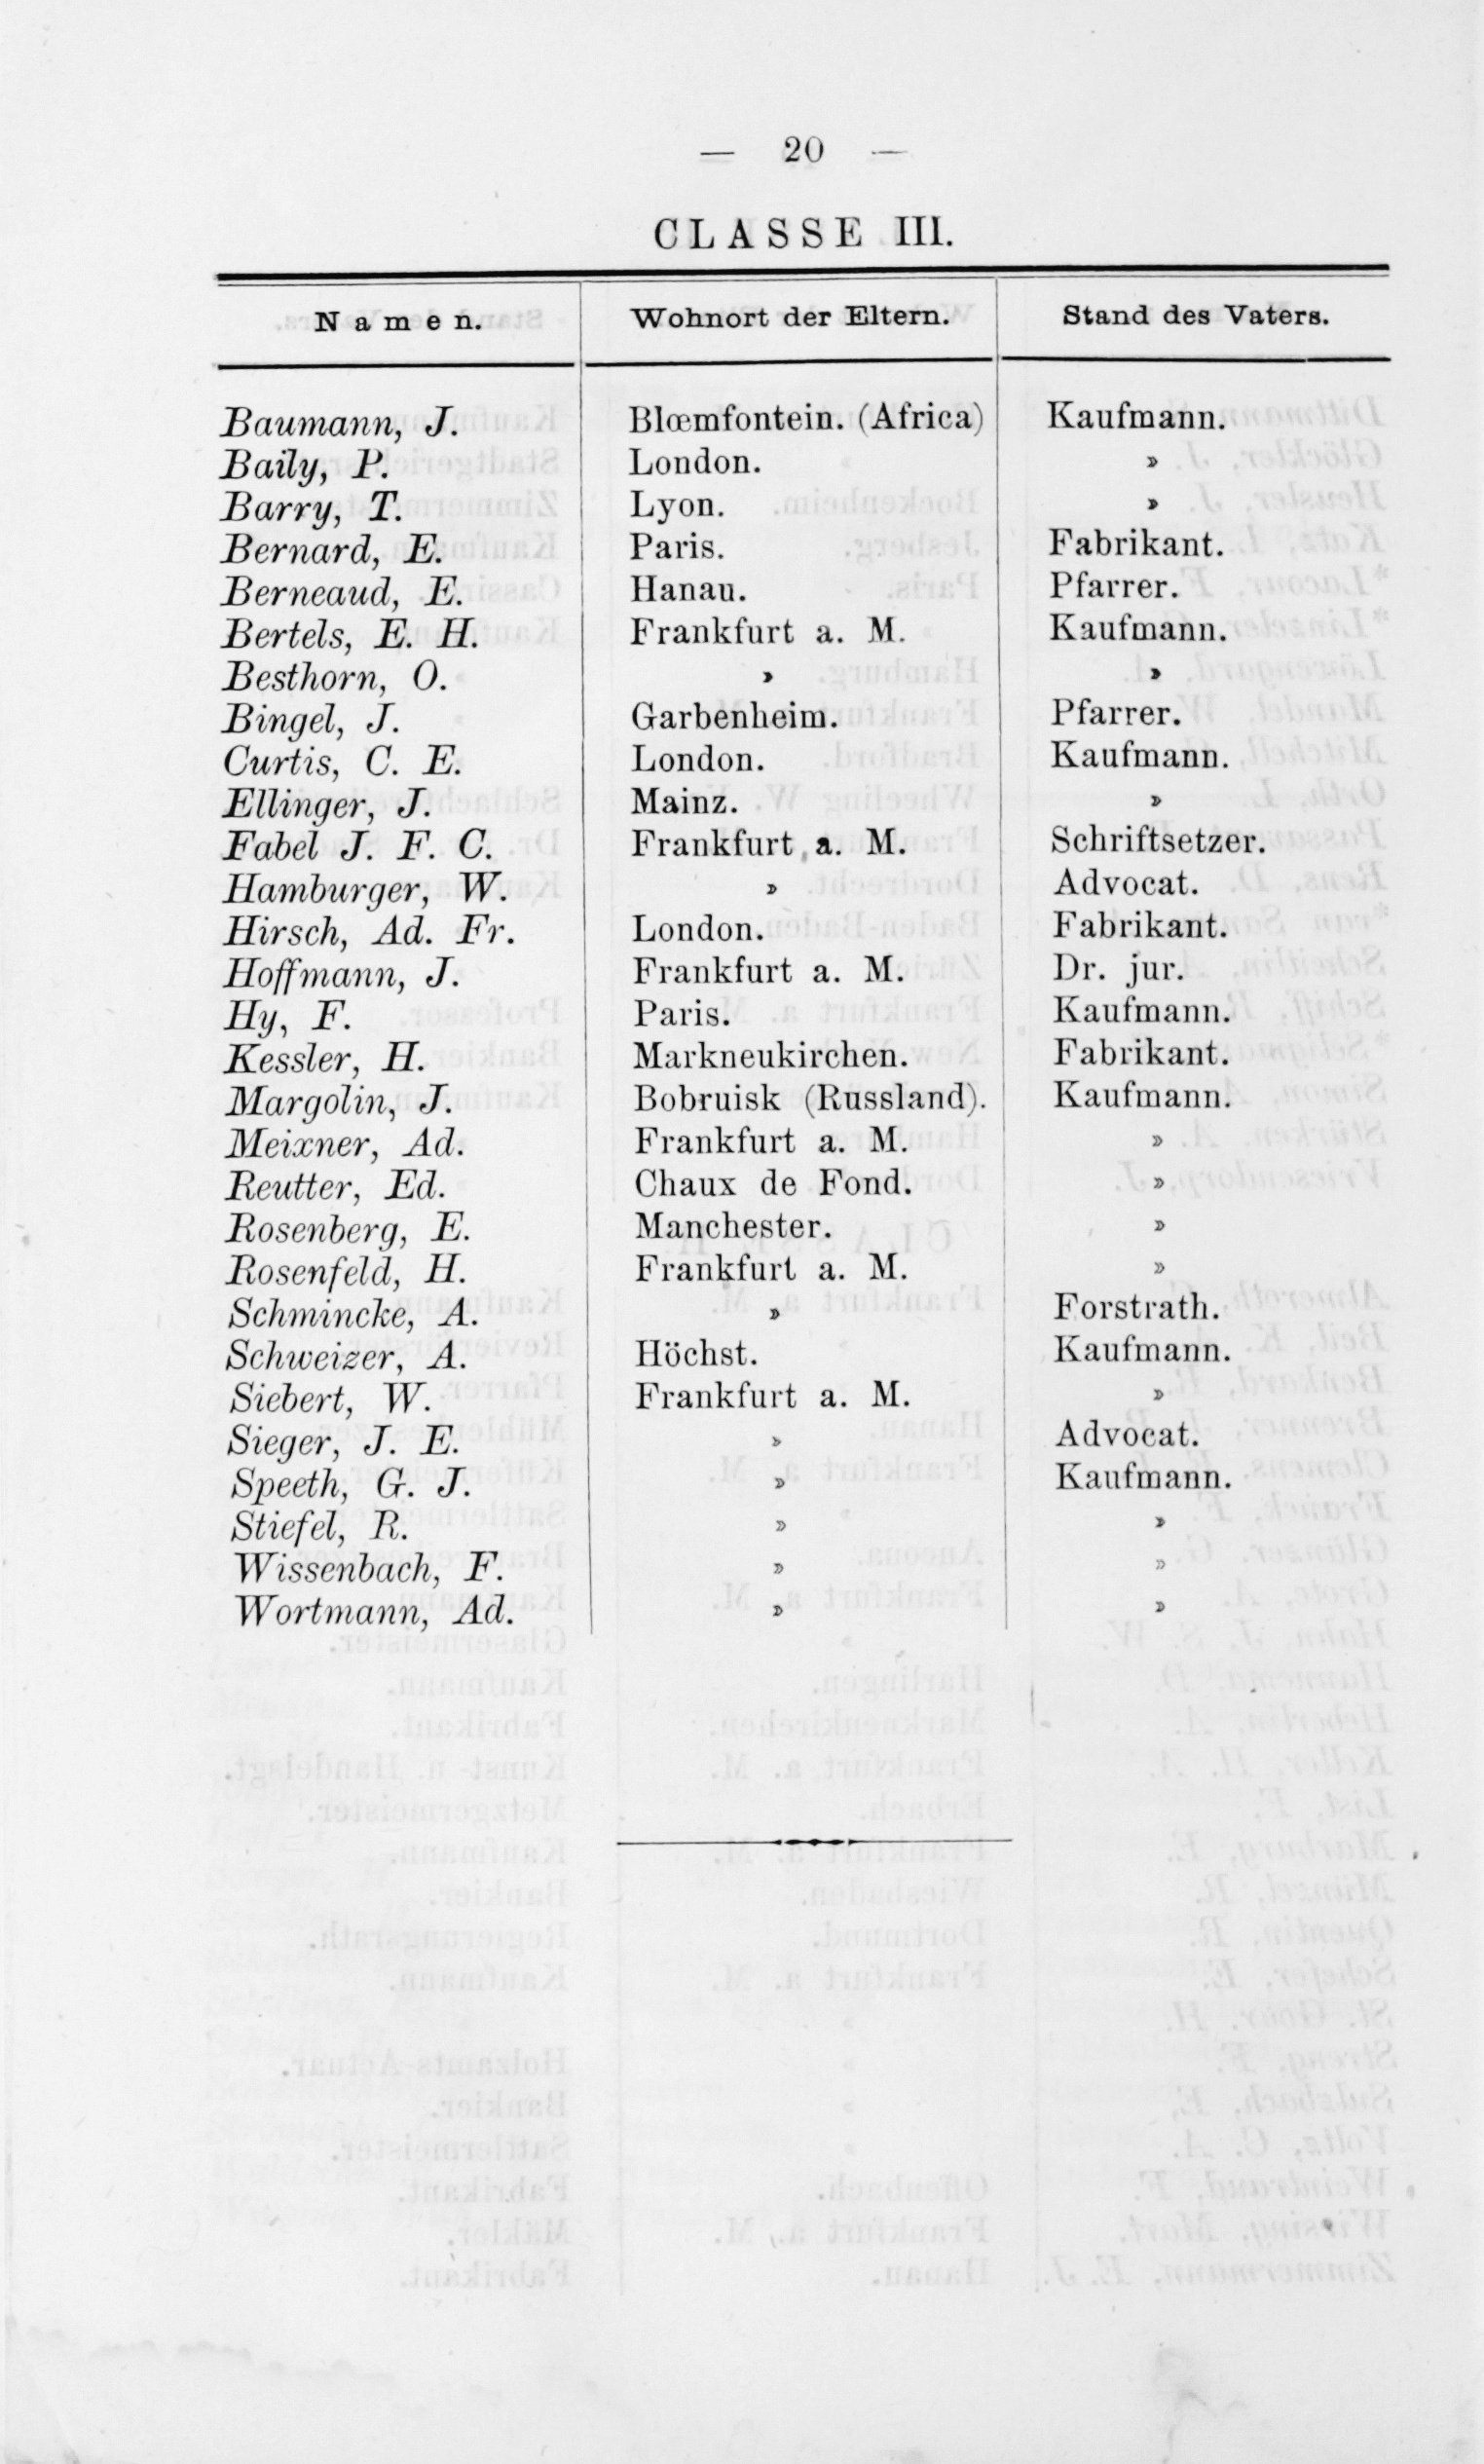 — 20 —
CLASSE III.
Namen. Wohnort der Eltern. Stand des Vaters.
Baumann, J. Blœmfontein. (Africa) Kaufmann.
Baily, P. London. »
Barry, T. Lyon. »
Bernard, E. Paris. Fabrikant.
Berneaud, E. Hanau. Pfarrer.
Bertels, E. H. Frankfurt a. M. Kaufmann.
Besthorn, O. » »
Bingel, J. Garbenheim. Pfarrer.
Curtis, C. E. London. Kaufmann.
Ellinger, J. Mainz. »
Fabel J. F. C. Frankfurt a. M. Schriftsetzer.
Hamburger, W. » Advocat.
Hirsch, Ad. Fr. London. Fabrikant.
Hoffmann, J. Frankfurt a. M. Dr. jur.
Hy, F. Paris. Kaufmann.
Kessler, H. Markneukirchen. Fabrikant.
Margolin, J. Bobruisk (Russland). Kaufmann.
Meixner, Ad. Frankfurt a. M. »
Reutter, Ed. Chaux de Fond. »
Rosenberg, E. Manchester. »
Rosenfeld, H. Frankfurt a. M. »
Schmincke, A. » Forstrath.
Schweizer, A. Höchst. Kaufmann.
Siebert, W. Frankfurt a. M. »
Sieger, J. E. » Advocat.
Speeth, G. J. » Kaufmann.
Stiefel, R. » »
Wissenbach, F. » »
Wortmann, Ad. » »